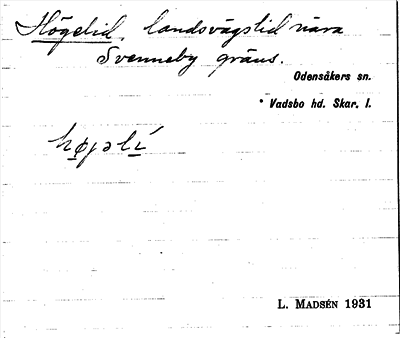 Högelid, landsvägslid nära
Svenneby gräns.
Odensåkers sn.
Vadsbo hd. Skar. l.
L. MADSÉN 1931